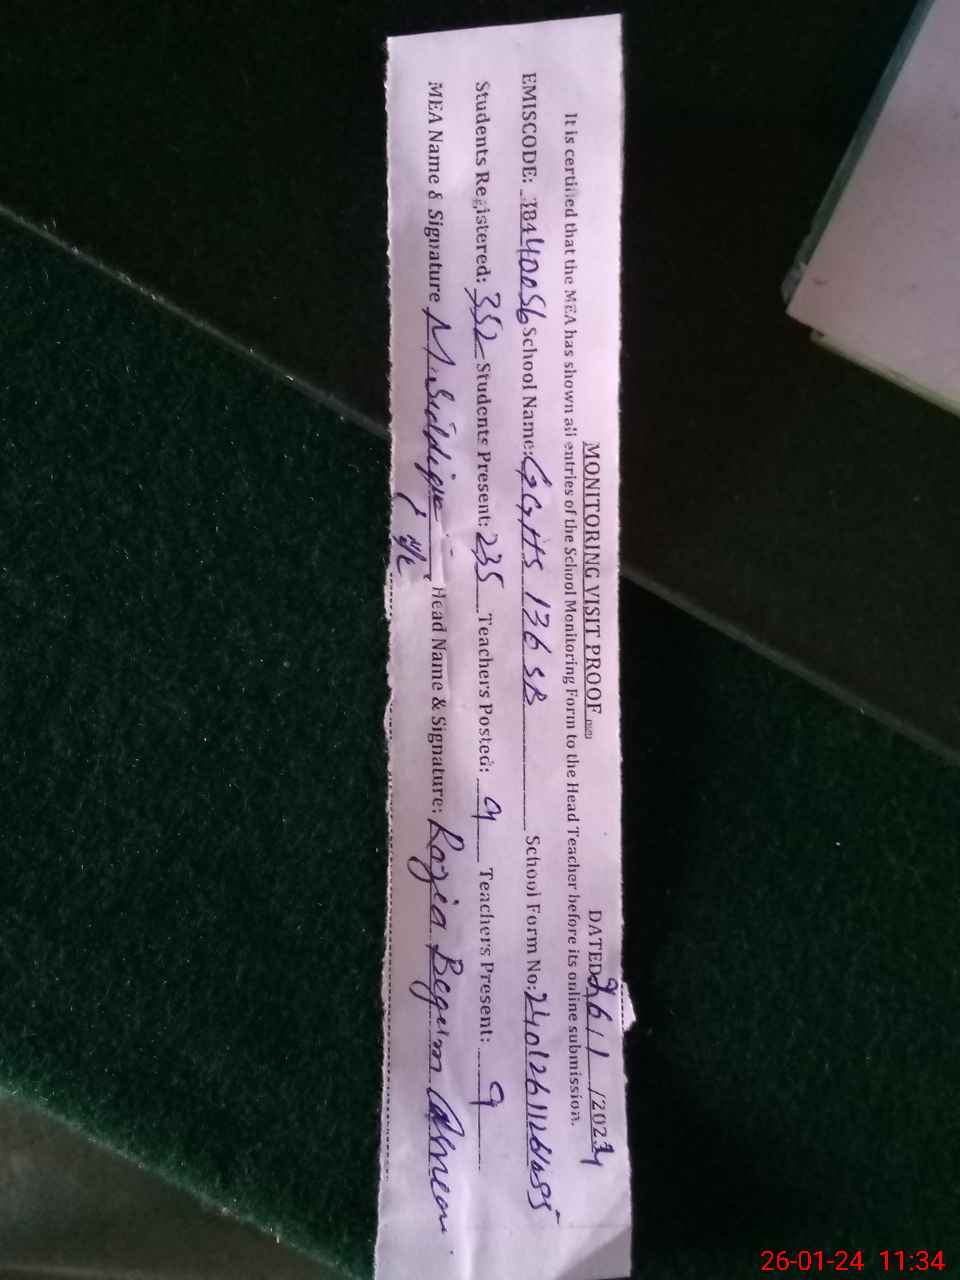 MONITORING VISIT PROOF DATED 26/1/2024
It is certified that the MEA has shown all entries of the School Monitoring Form to the Head Teacher before its online submission.
EMISCODE: 38440056 School Name: GGHS 136 SB School Form No:
Students Registered: 352 Students Present: 235 Teachers Posted: 9 Teachers Present: 9
MEA Name & Signature M. Siddique Head Name & Signature: Razia Begum
26-01-24 11:34